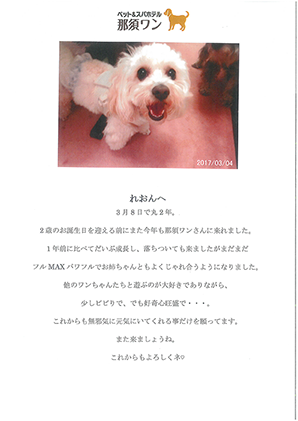 ペット&スパホテル
那須ワン
2017/03/04
れおんへ
3月8日で丸2年。
2歳のお誕生日を迎える前にまた今年も那須ワンさんに来れました。
1年前に比べてだいぶ成長し、落ちついても来ましたがまだまだ
ソルMAXパワフルでお姉ちゃんともよくじゃれ合うようになりました。
他のワンちゃんたちと遊ぶのが大好きでありながら、
少しビビりで、でも好奇心旺盛で・・・。
これからも無邪気に元気にいてくれる事だけを願ってます。
また来ましょうね。
これからもよろしくネ♡